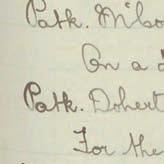 Patk. Wilso
On a
Patk. Dohert
For the